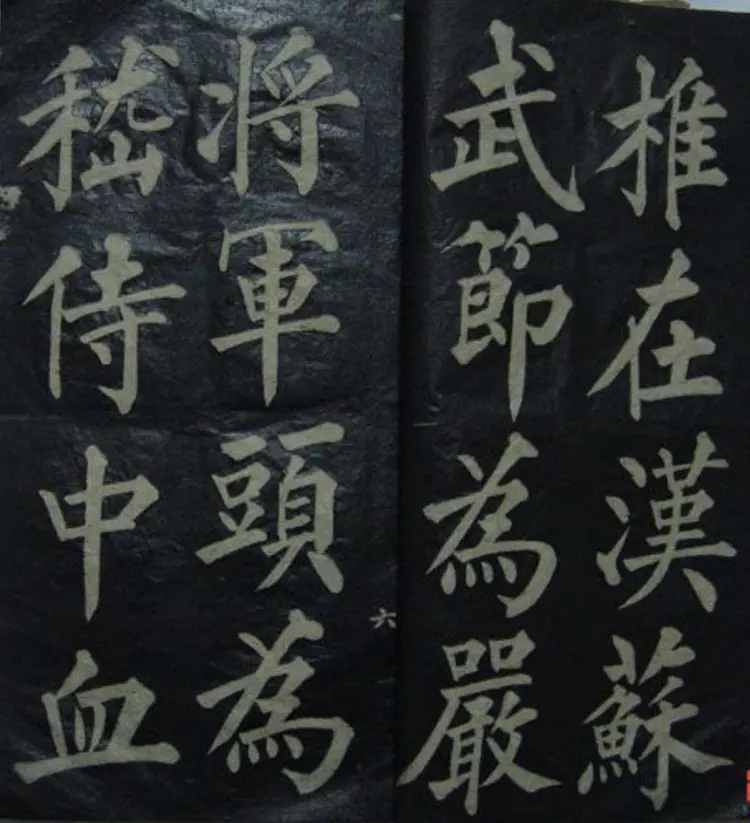 椎在漢蘇
武節為嚴
將軍頭為
嵇侍中血
六